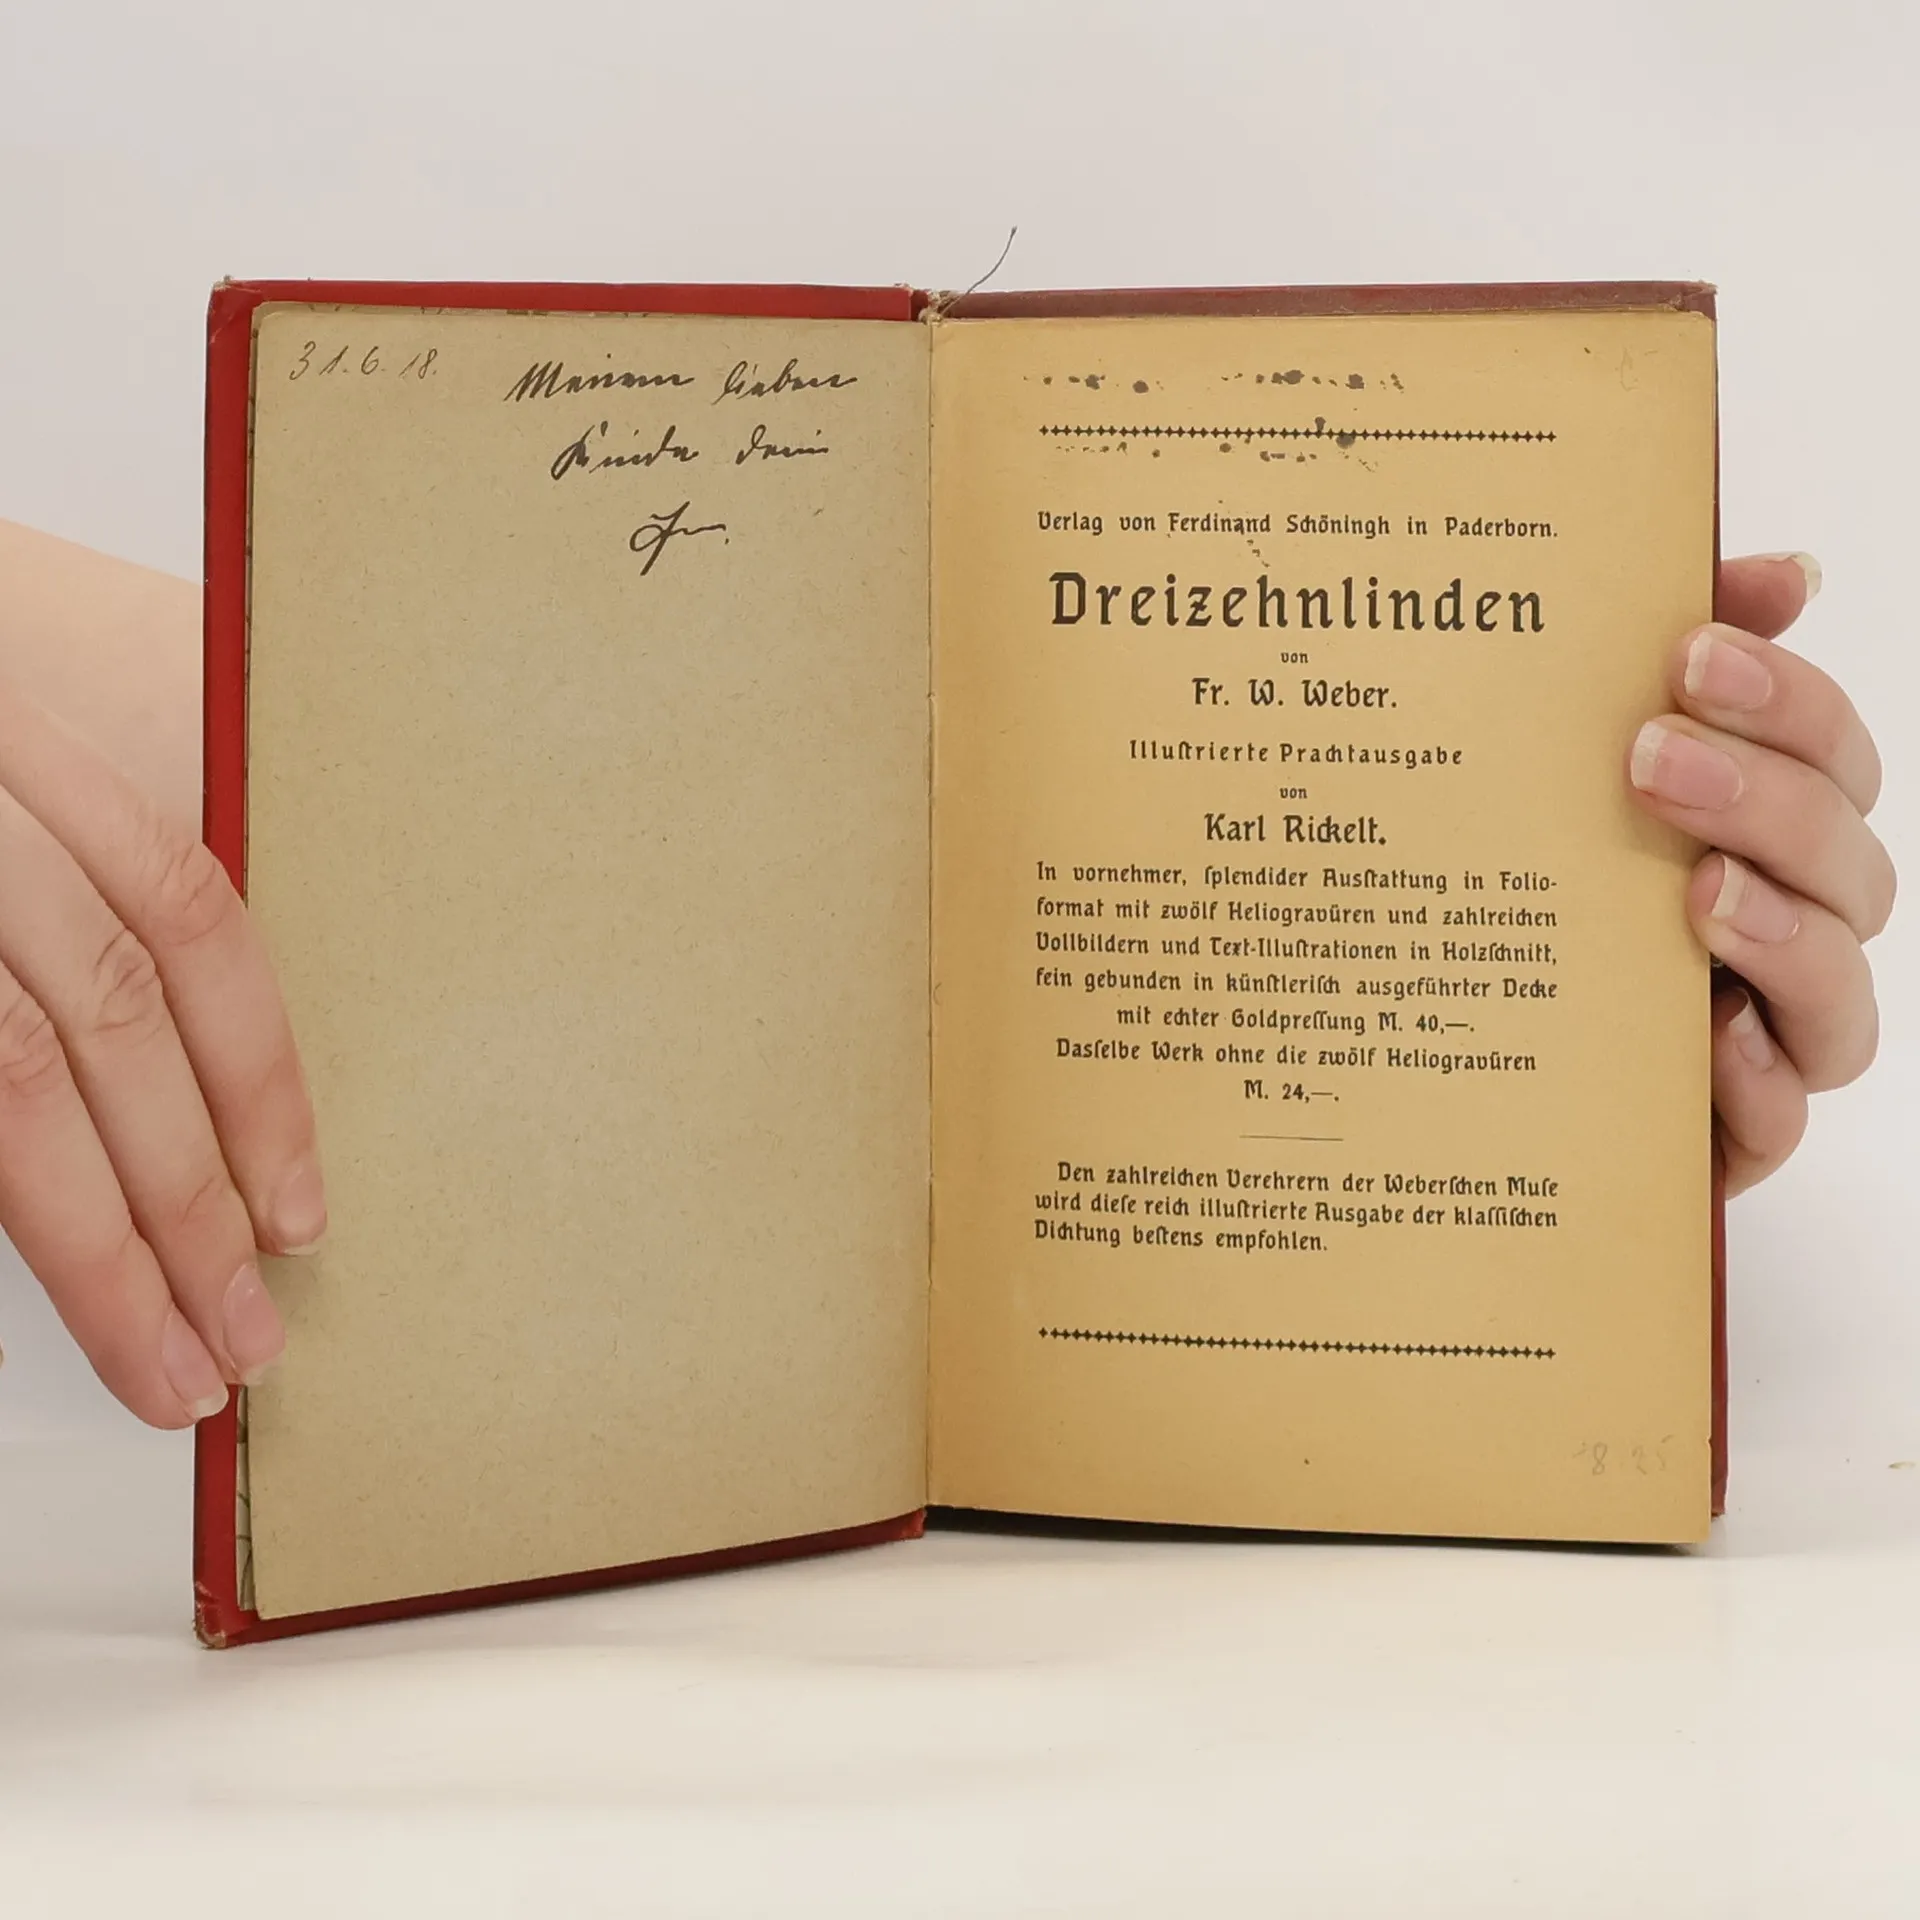 31.6.18.
Meinem lieben
Kinde dein
Verlag von Ferdinand Schöningh in Paderborn.
Dreizehnlinden
von
Fr. W. Weber.
Illuſtrierte Prachtausgabe
von
Karl Rickelt.
In vornehmer, ſplendider Ausſtattung in Folio-
format mit zwölf Heliogravüren und zahlreichen
Vollbildern und Text-Illuſtrationen in Holzſchnitt,
fein gebunden in künſtleriſch ausgeführter Decke
mit echter Goldpreſſung M. 40,—.
Dasſelbe Werk ohne die zwölf Heliogravüren
M. 24,—.
Den zahlreichen Verehrern der Weberſchen Muſe
wird dieſe reich illuſtrierte Ausgabe der klaſſiſchen
Dichtung beſtens empfohlen.